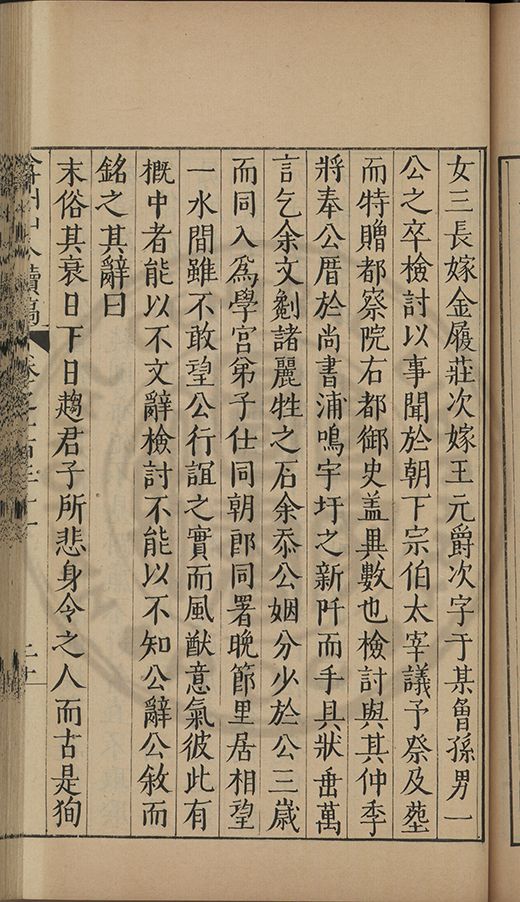 女三長嫁金履莊次嫁王元爵次字于某曾孫男一
公之卒檢討以事聞於朝下宗伯太宰議予祭及塟
而特贈都察院右都御史盖異數也檢討與其仲季
將奉公厝於尚書浦鳴字圩之新阡而手具狀垂萬
言乞余文劖諸麗牲之石余忝公姻分少於公三歲
而同入爲學官弟子仕同朝郎同署晚節里居相望
一水間雖不敢望公行誼之實而風猷意氣彼此有
概中者能以不文辭檢討不能以不知公辭公敘而
銘之其辭曰
末俗其衰日下日趨君子所悲身今之人而古是狥